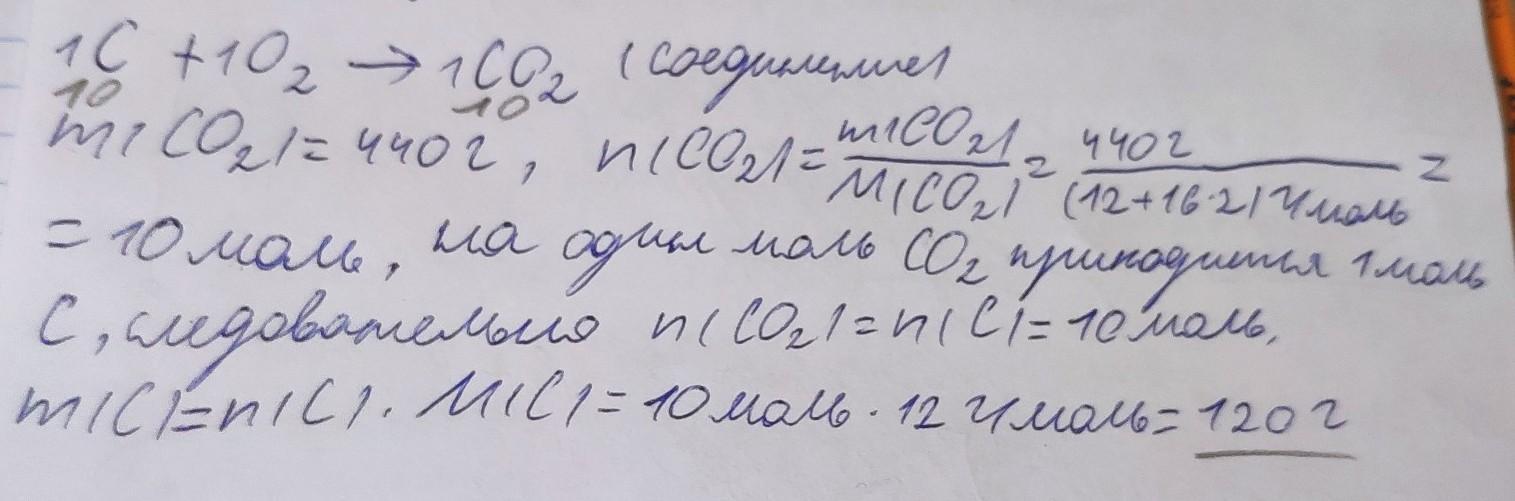 1C + 1O₂ → 1CO₂ (соединение)
10 10
m(CO₂) = 440 г, n(CO₂) = m(CO₂) / M(CO₂) = 440 г / (12+16·2) г/моль =
= 10 моль, на один моль CO₂ приходится 1 моль
C, следовательно n(CO₂) = n(C) = 10 моль.
m(C) = n(C) · M(C) = 10 моль · 12 г/моль = 120 г